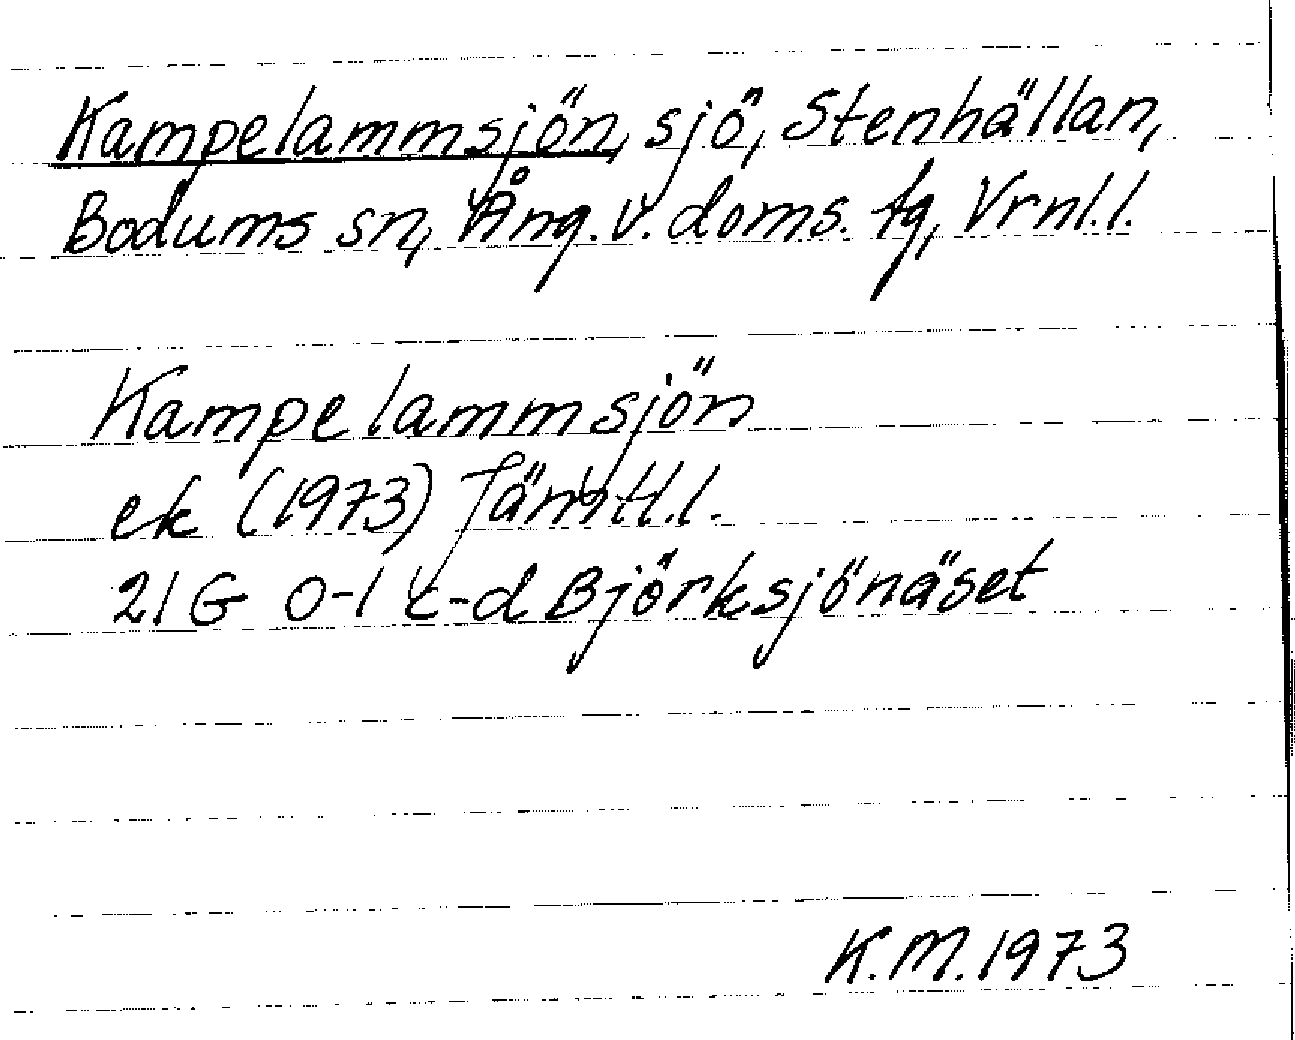 Kampelammsjön, sjö, Stenhällan,
Bodums sn, Ång. v. doms. tg, Vrnl.l.
Kampelammsjön
ek (1973) Jämtl.l.
21G 0-1 c-d Björksjönäset
K.M. 1973